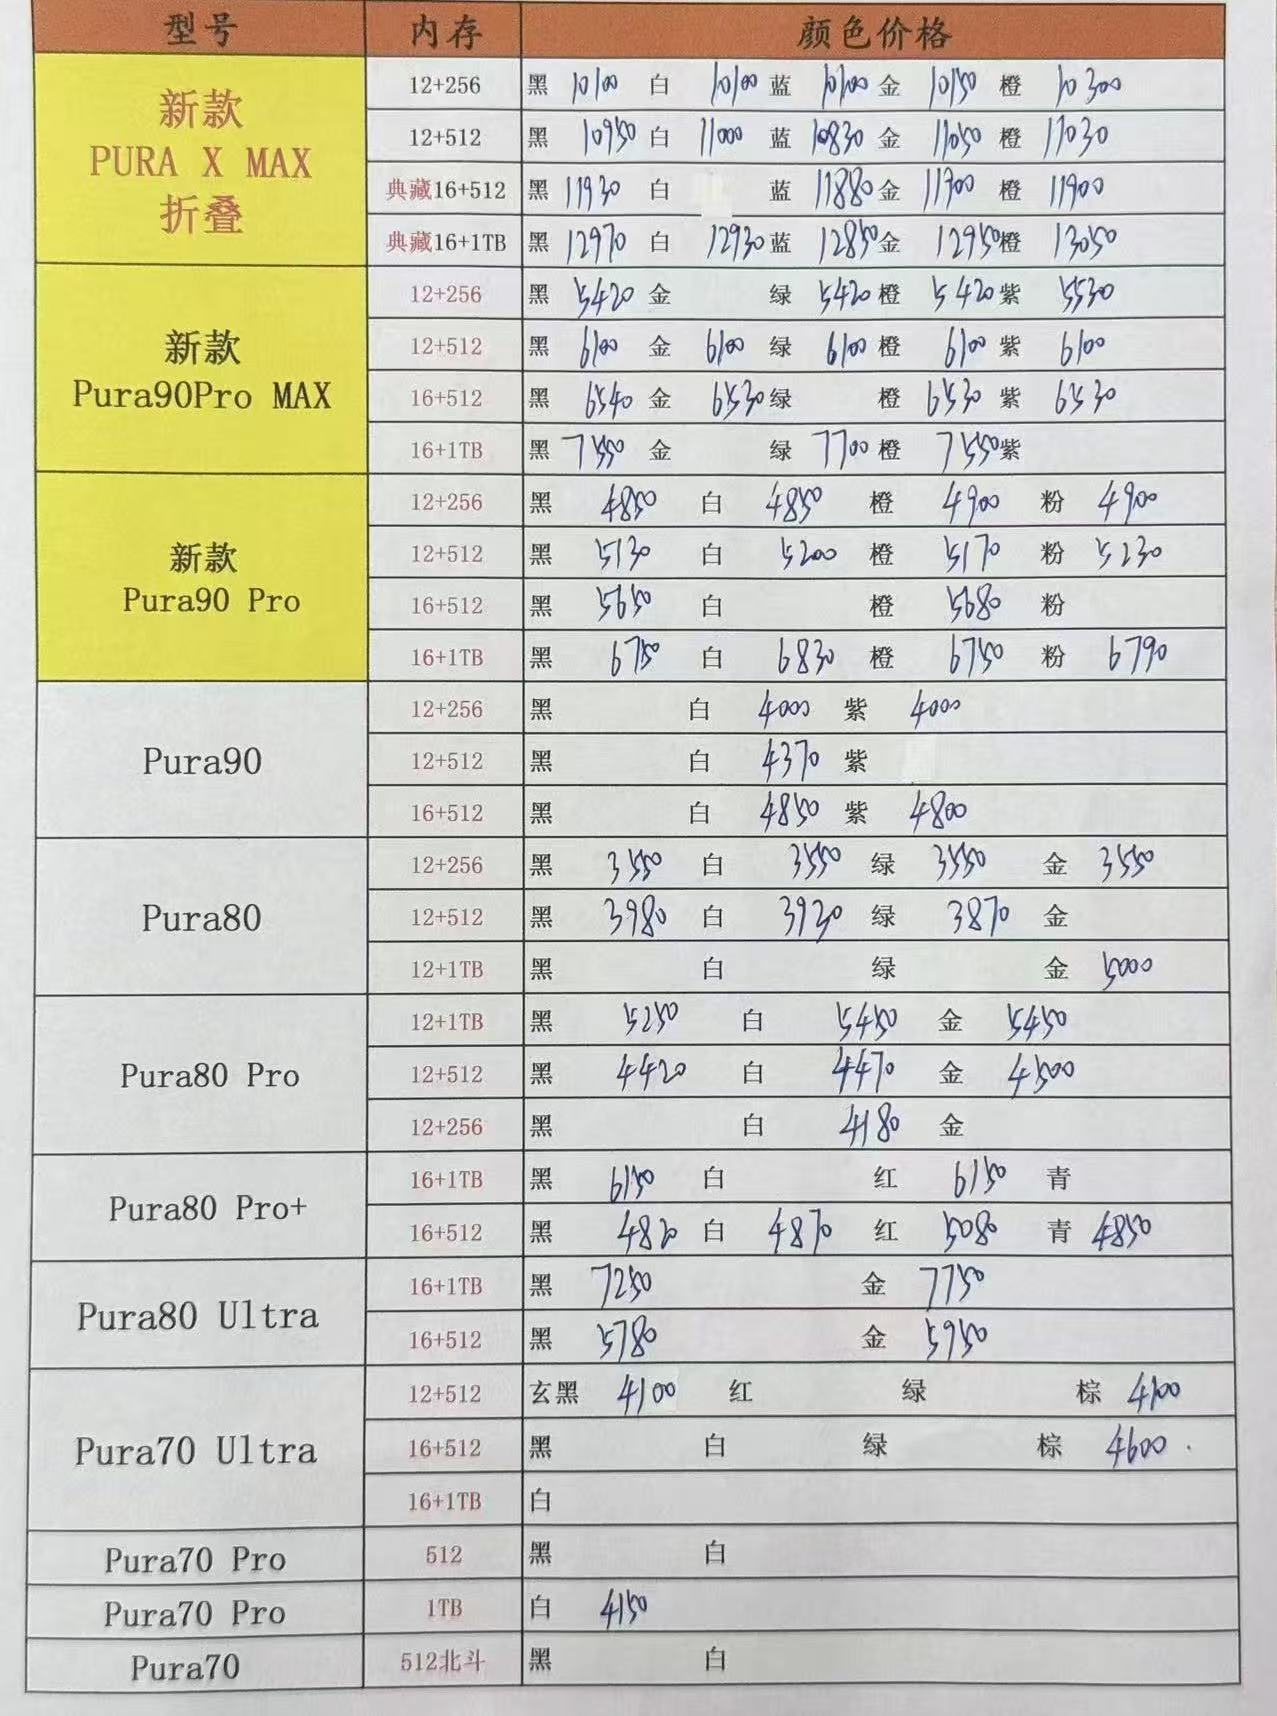 型号 内存 颜色价格
新款 PURA X MAX 折叠
12+256 黑 10100 白 10100 蓝 10100 金 10150 橙 10300
12+512 黑 10950 白 11000 蓝 10830 金 11050 橙 11030
典藏16+512 黑 11930 白 蓝 11880 金 11700 橙 11900
典藏16+1TB 黑 12970 白 12930 蓝 12850 金 12950 橙 13050
新款 Pura90Pro MAX
12+256 黑 5420 金 绿 5420 橙 5420 紫 5530
12+512 黑 6100 金 6100 绿 6100 橙 6100 紫 6100
16+512 黑 6540 金 6530 绿 橙 6530 紫 6530
16+1TB 黑 7550 金 绿 7700 橙 7550 紫
新款 Pura90 Pro
12+256 黑 4850 白 4850 橙 4900 粉 4900
12+512 黑 5130 白 5200 橙 5170 粉 5230
16+512 黑 5650 白 橙 5680 粉
16+1TB 黑 6750 白 6830 橙 6750 粉 6790
Pura90
12+256 黑 白 4000 紫 4000
12+512 黑 白 4370 紫
16+512 黑 白 4850 紫 4800
Pura80
12+256 黑 3550 白 3550 绿 3550 金 3550
12+512 黑 3980 白 3930 绿 3870 金
12+1TB 黑 白 绿 金 5000
Pura80 Pro
12+1TB 黑 5250 白 5450 金 5450
12+512 黑 4420 白 4470 金 4500
12+256 黑 白 4180 金
Pura80 Pro+
16+1TB 黑 6150 白 红 6150 青
16+512 黑 4820 白 4870 红 5080 青 4850
Pura80 Ultra
16+1TB 黑 7250 金 7750
16+512 黑 5780 金 5950
Pura70 Ultra
12+512 玄黑 4100 红 绿 棕 4100
16+512 黑 白 绿 棕 4600
16+1TB 白
Pura70 Pro 512 黑 白
Pura70 Pro 1TB 白 4150
Pura70 512北斗 黑 白